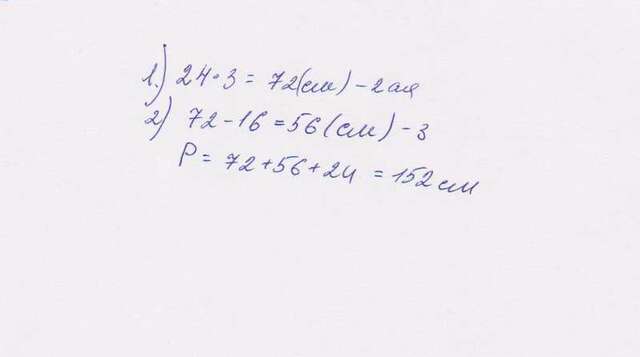 1.) 24·3 = 72(см) – 2ая
2) 72-16=56(см) - 3
P = 72+56+24 = 152 см